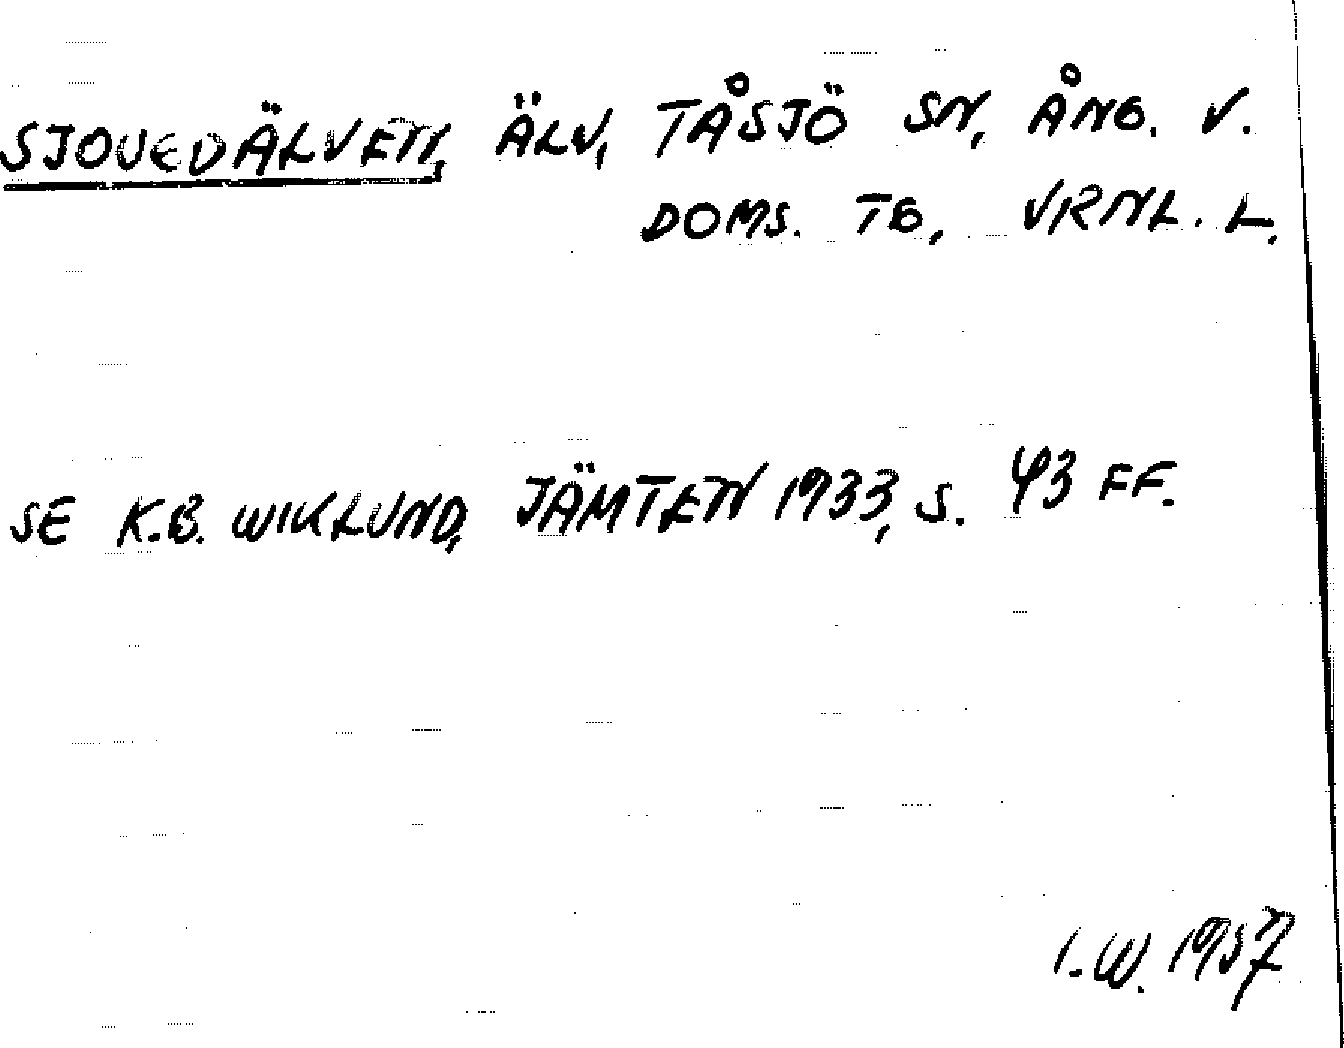 SJOUEDÄLVEN, ÄLV, TÅSJÖ SN, ÅNG. V.
DOMS. TG, VRNL. L.
SE K.B. WIKLUND, JÄMTEN 1933, S. 43 FF.
I.W. 1957